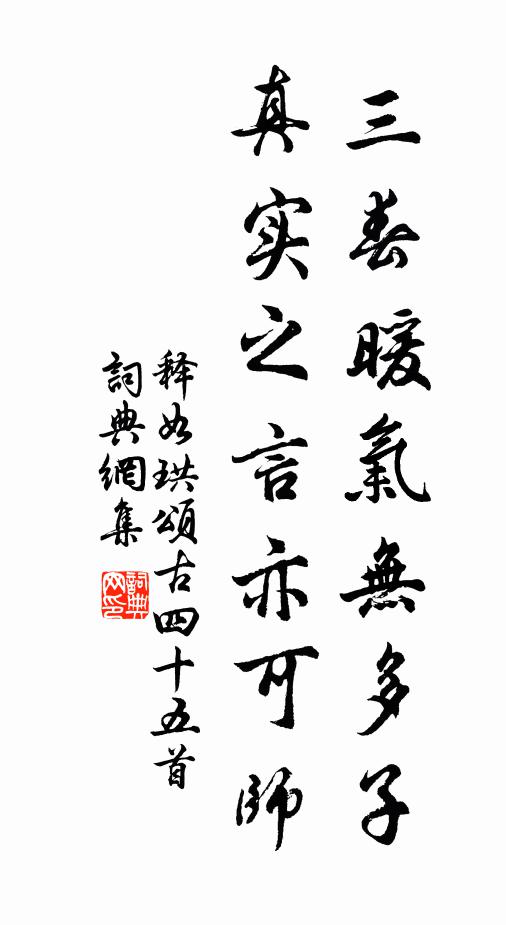 三春暖氣無多子
真实之言亦可師
释如珙頌古四十五首
詞典網集
詞典网印